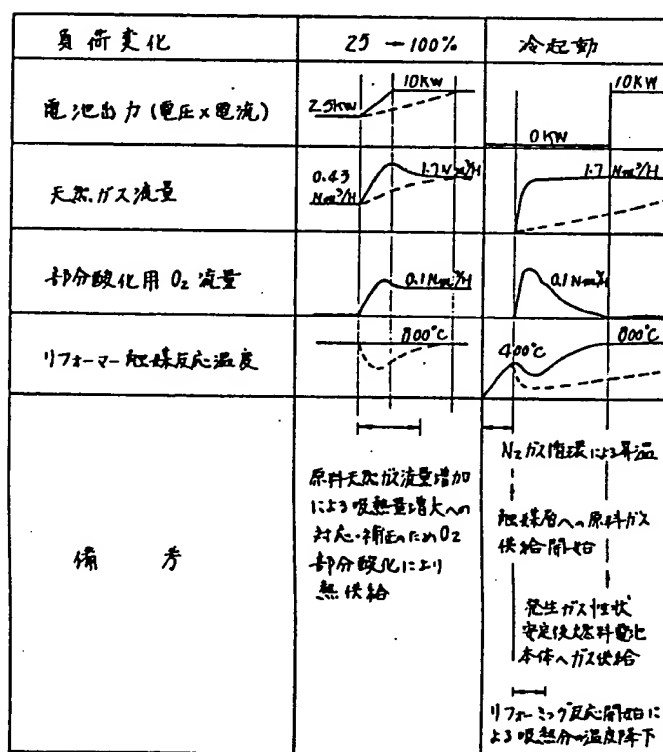 負荷変化
25→100%
冷起動
電池出力(電圧×電流)
2.5KW
10KW
0KW
10KW
天然ガス流量
0.43
Nm³/H
1.7Nm³/H
1.7 Nm³/H
部分酸化用O₂流量
0.1Nm³/H
0.1Nm³/H
リフォーマー触媒反応温度
800℃
400℃
800℃
備考
原料天然ガス流量増加
による吸熱量増大への
対応・補正のためO₂
部分酸化により
熱供給
N₂ガス循環による昇温
触媒層への原料ガス
供給開始
発生ガス性状
安定後燃料電池
本体へガス供給
リフォーミング反応開始に
よる吸熱分の温度降下